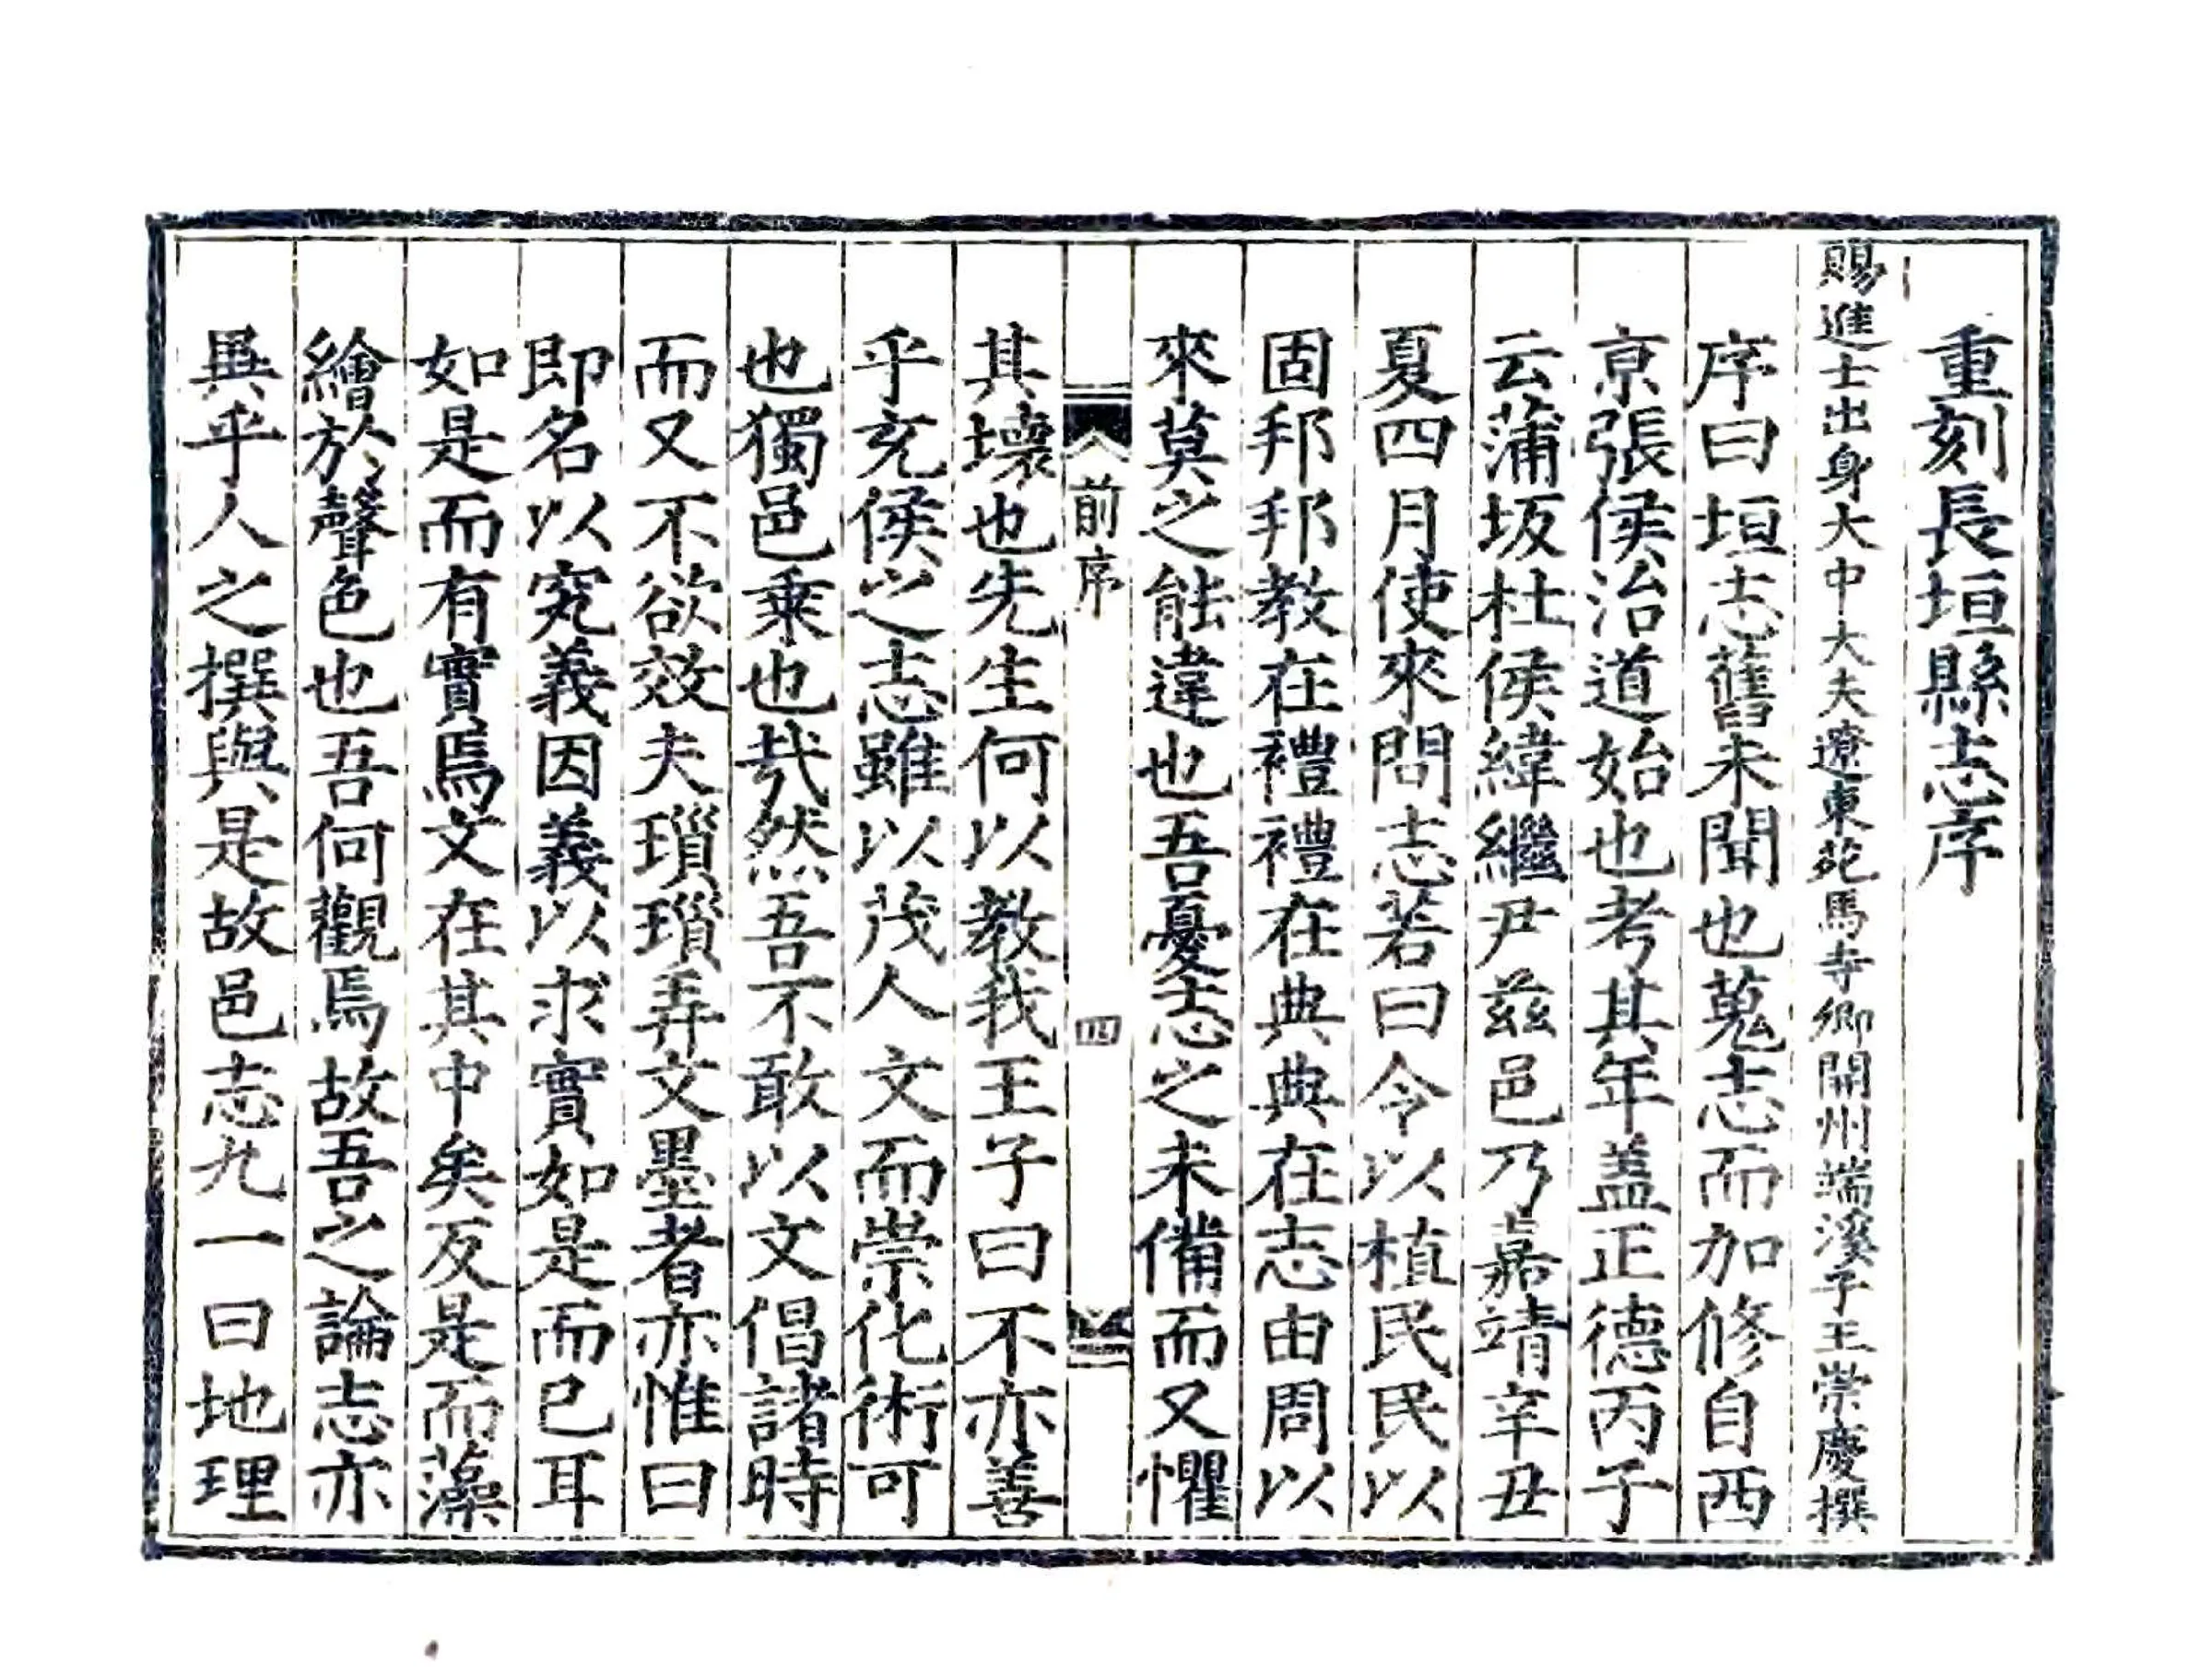 重刻長垣縣志序
賜進士出身大中大夫遼東苑馬寺卿開州端溪子王崇慶撰
序曰垣志舊未聞也蒐志而加修自西
京張侯治道始也考其年盖正德丙子
云蒲坂杜侯緯繼尹兹邑乃嘉靖辛丑
夏四月使來問志若曰令以植民民以
固邦邦教在禮禮在典典在志由周以
來莫之能違也吾憂志之未備而又懼
前序
四
其壞也先生何以教我王子曰不亦善
乎兖侯之志雖以茂人文而崇化術可
也獨邑乘也㦲然吾不敢以文倡諸時
而又不欲效夫瑣瑣弄文墨者亦惟曰
即名以究義因義以求實如是而已耳
如是而有實焉文在其中矣反是而藻
繪於聲色也吾何觀焉故吾之論志亦
異乎人之撰與是故邑志九一曰地理